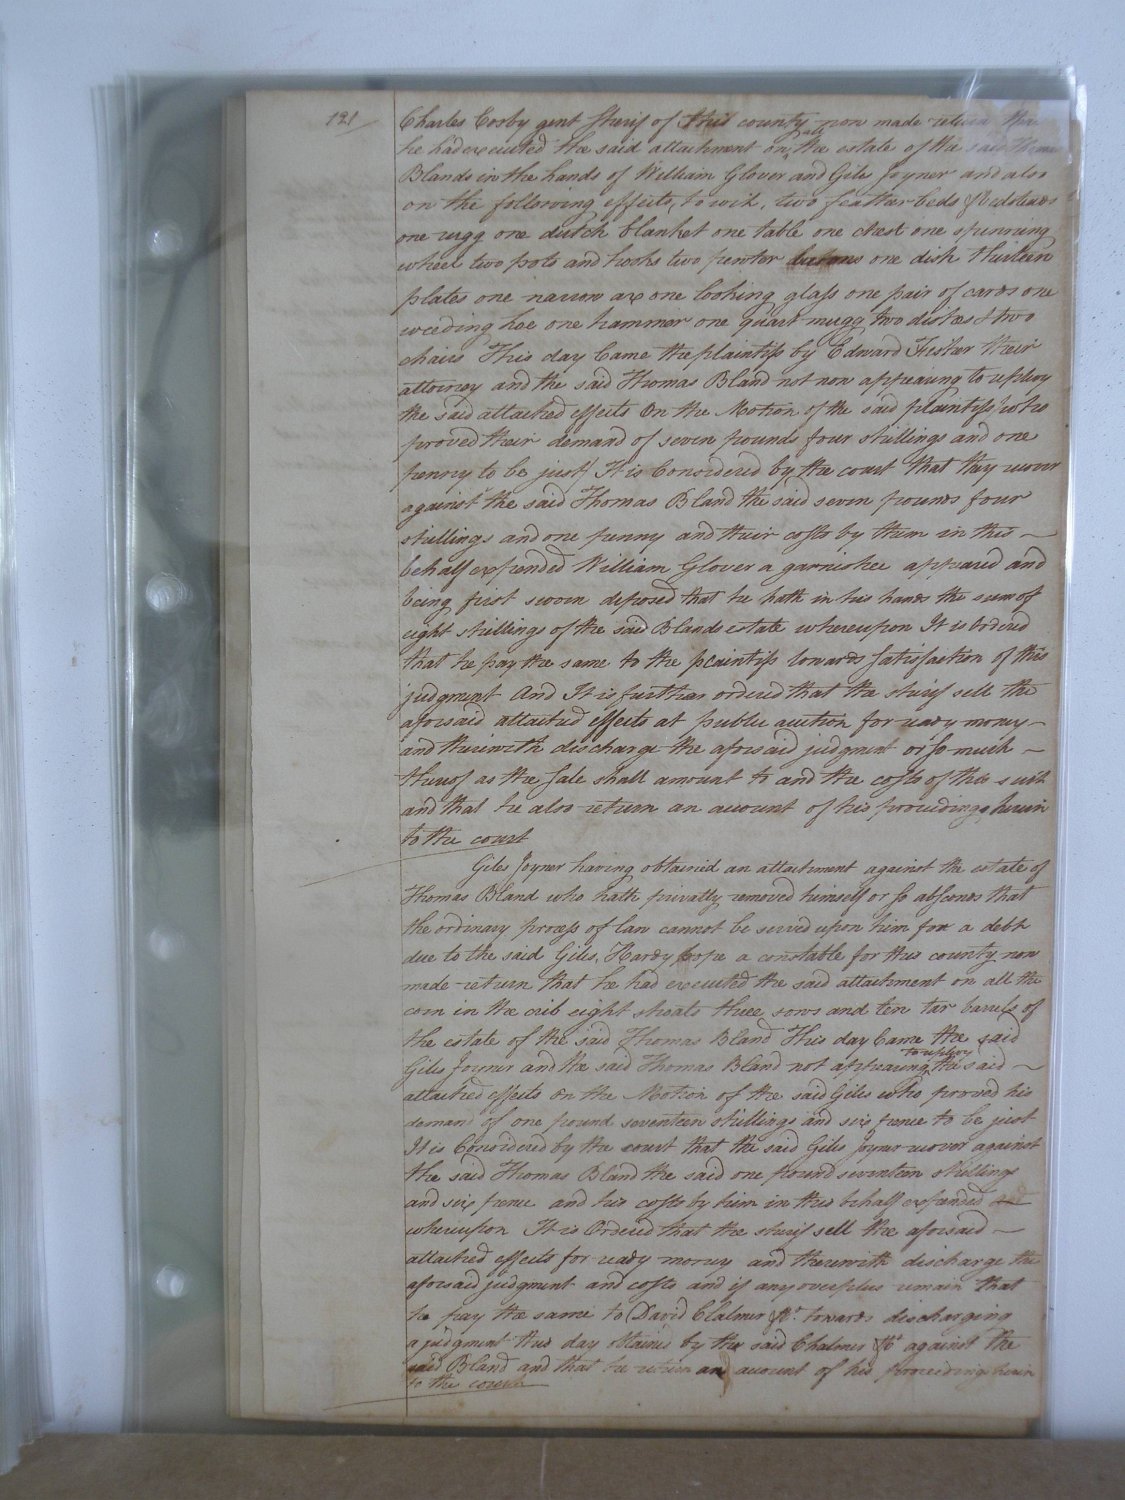 121
Charles Cosby gent Sherif of this county now made return that
he had executed the said attachment on all the estate of the said Thomas
Blands in the hands of William Glover and Giles Joyner and also
on the following effects, to wit, two feather beds & Bedsteads
one rugg one dutch blanket one table one chest one spinning
wheel two pots and hooks two pewter basons one dish thirteen
plates one narrow ax one looking glass one pair of cards one
weeding hoe one hammer one quart mugg two dishes & two
chairs This day Came the plaintifs by Edward Fisher their
attorney and the said Thomas Bland not now appearing to replevy
the said attached effects On the Motion of the said plaintifs who
proved their demand of seven pounds four shillings and one
penny to be just It is Considered by the court that they recover
against the said Thomas Bland the said seven pounds four
shillings and one penny and their costs by them in this
behalf expended William Glover a garnishee appeared and
being first sworn deposed that he hath in his hands the sum of
eight shillings of the said Blands estate whereupon It is Ordered
that he pay the same to the plaintifs towards satisfaction of this
judgment And It is further ordered that the sherif sell the
aforsaid attached effects at public auction for ready money
and therewith discharge the aforsaid judgment or so much
thereof as the sale shall amount to and the costs of this suit
and that he also return an account of his proceedings herein
to the court
Giles Joyner having obtained an attachment against the estate of
Thomas Bland who hath privatly removed himself or so absconds that
the ordinary process of law cannot be served upon him for a debt
due to the said Giles, Hardy pope a constable for this county now
made return that he had executed the said attachment on all the
corn in the crib eight shoats three sows and ten tar barrels of
the estate of the said Thomas Bland This day Came the said
Giles Joyner and the said Thomas Bland not appearing to replevy the said
attached effects On the Motion of the said Giles who proved his
demand of one pound seventeen shillings and six pence to be just
It is Considered by the court that the said Giles Joyner recover against
the said Thomas Bland the said one pound seventeen shillings
and six pence and his costs by him in this behalf expended
whereupon It is Ordered that the sherif sell the aforsaid
attached effects for ready money and therewith discharge the
aforsaid judgment and costs and if any overplus remain that
he pay the same to David Chalmer towards discharging
a judgment this day obtained by the said Chalmers against the
said Bland and that he return an account of his proceedings herein
to the court